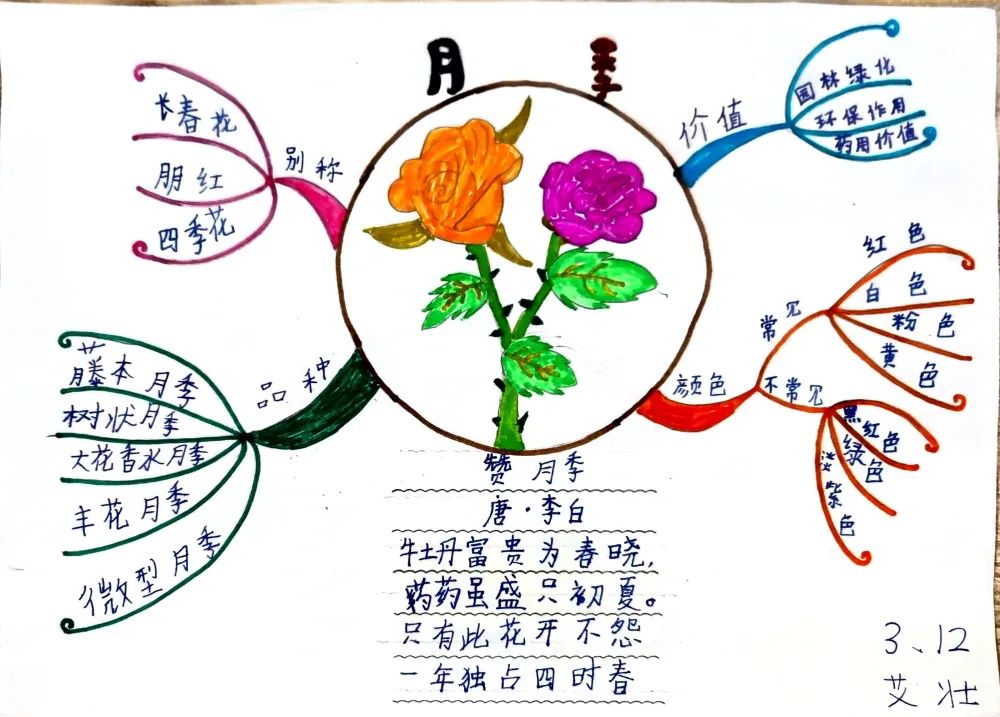 月季
别称
长春花
朋红
四季花
价值
园林绿化
环保作用
药用价值
品种
藤本月季
树状月季
大花香水月季
丰花月季
微型月季
颜色
常见
红色
白色
粉色
黄色
不常见
黑红色
绿色
淡紫色
赞月季
唐·李白
牡丹富贵为春晓,
药虽盛只初夏。
只有此花开不怨
一年独占四时春
3、12
艾壮